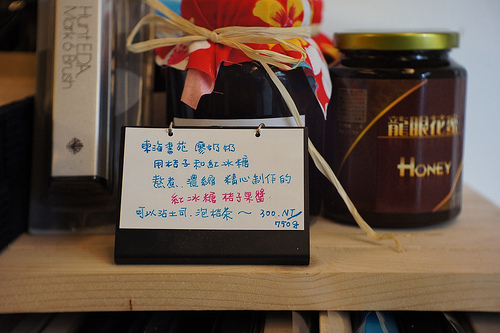 Hunt EDA
Mark o Brush
東海書苑 廖奶奶
用桔子和紅冰糖
熬煮、濃縮 精心制作的
紅冰糖 桔子果醬
可以沾土司、泡桔茶 ~ 300.NT
龍眼花蜜
HONEY